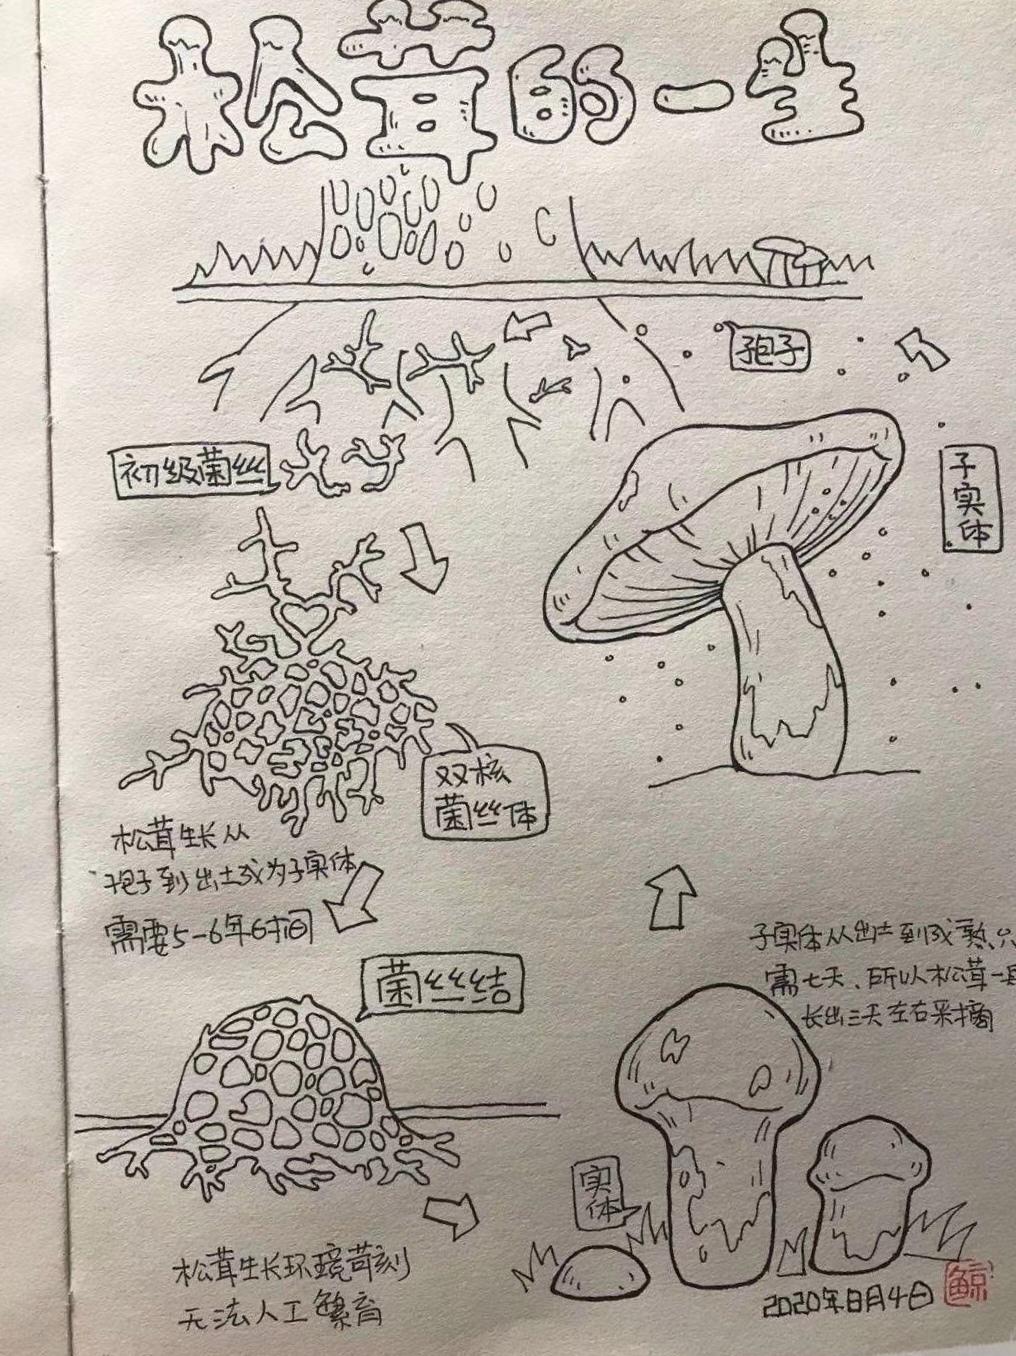 松茸的一生
孢子
子实体
初级菌丝
双核
菌丝体
松茸生长从
孢子到出土成为子实体
需要5-6年时间
菌丝结
子实体从出声到成熟、只
需七天、所以松茸一般
长出三天左右采摘
实体
松茸生长环境苛刻
无法人工繁育
2020年8月4日
鲸